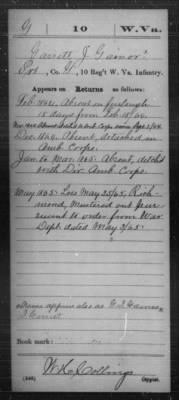 G | 10 | W.Va.
Garrett J. Gainor*
Pvt, Co. G, 10 Reg't W. Va. Infantry.
Appears on Returns as follows:
Feb. 1864. Absent on furlough
15 days from Feb.
Dec. 1864. Absent, detached in
Amb. Corps.
Jan. to Mar. 1865. Absent, detch'd
with Div. Amb. Corps.
May 1865. Loss May 25/65, Rich-
mond, Mustered out pur-
suant to order from War
Dept. dated May 3/65.
*Name appears also as
Book mark:
W. L. Collings
(546) Copyist.